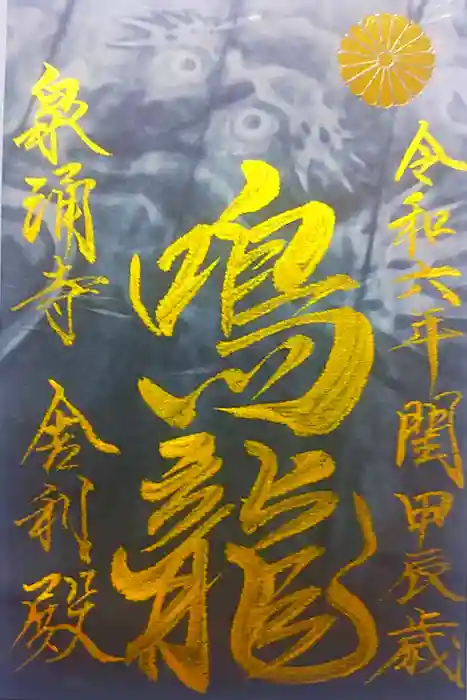 令和六年閏甲辰歳
鳴龍
泉涌寺 舎利殿